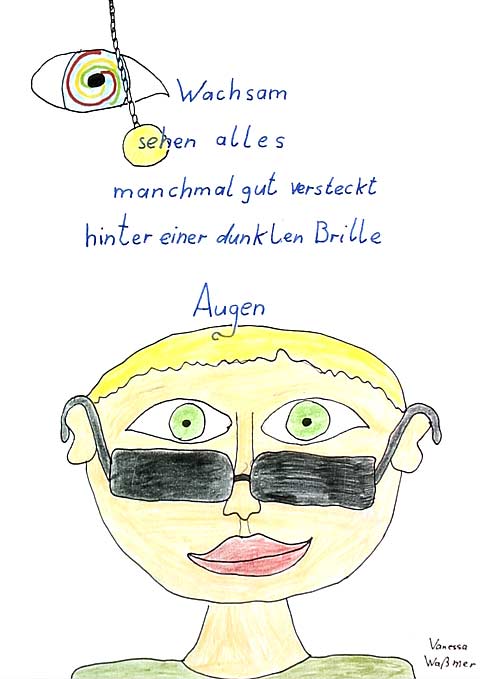 Wachsam
sehen alles
manchmal gut versteckt
hinter einer dunklen Brille
Augen
Vanessa
Waßmer